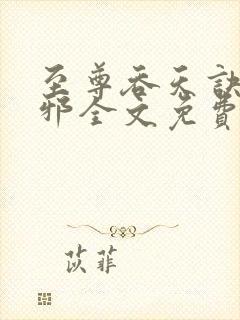 至尊吞天诀
邪全文免费
苡菲